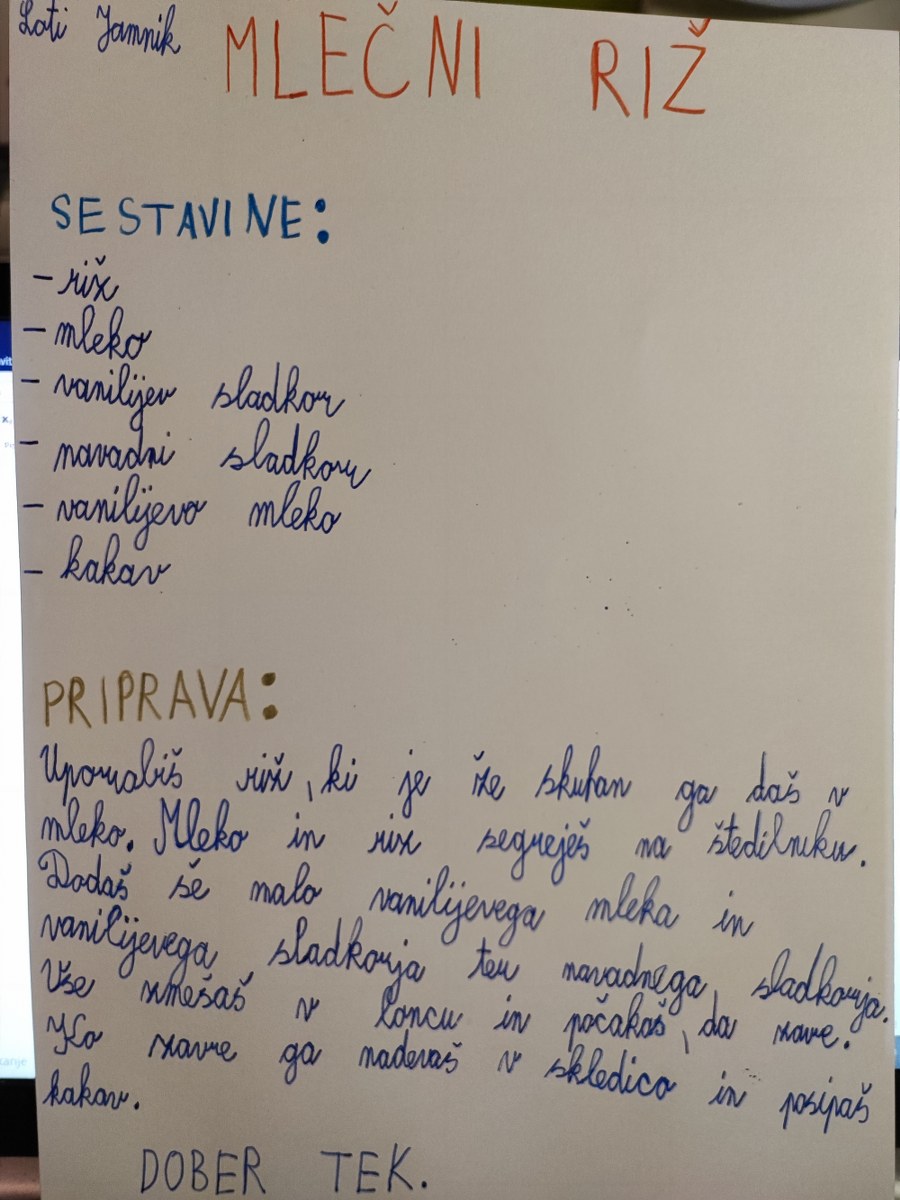 Loti Jamnik
MLEČNI RIŽ
SESTAVINE:
- riž
- mleko
- vanilijev sladkor
- navadni sladkor
- vanilijevo mleko
- kakav
PRIPRAVA:
Uporabiš riž, ki je že skuhan ga daš v
mleko. Mleko in riž segreješ na štedilniku.
Dodaš še malo vanilijevega mleka in
vanilijevega sladkorja ter navadnega sladkorja.
Vše zmešaš v loncu in počakaš, da zavre.
Ko zavre ga nadevaš v skledico in posipaš
kakav.
DOBER TEK.